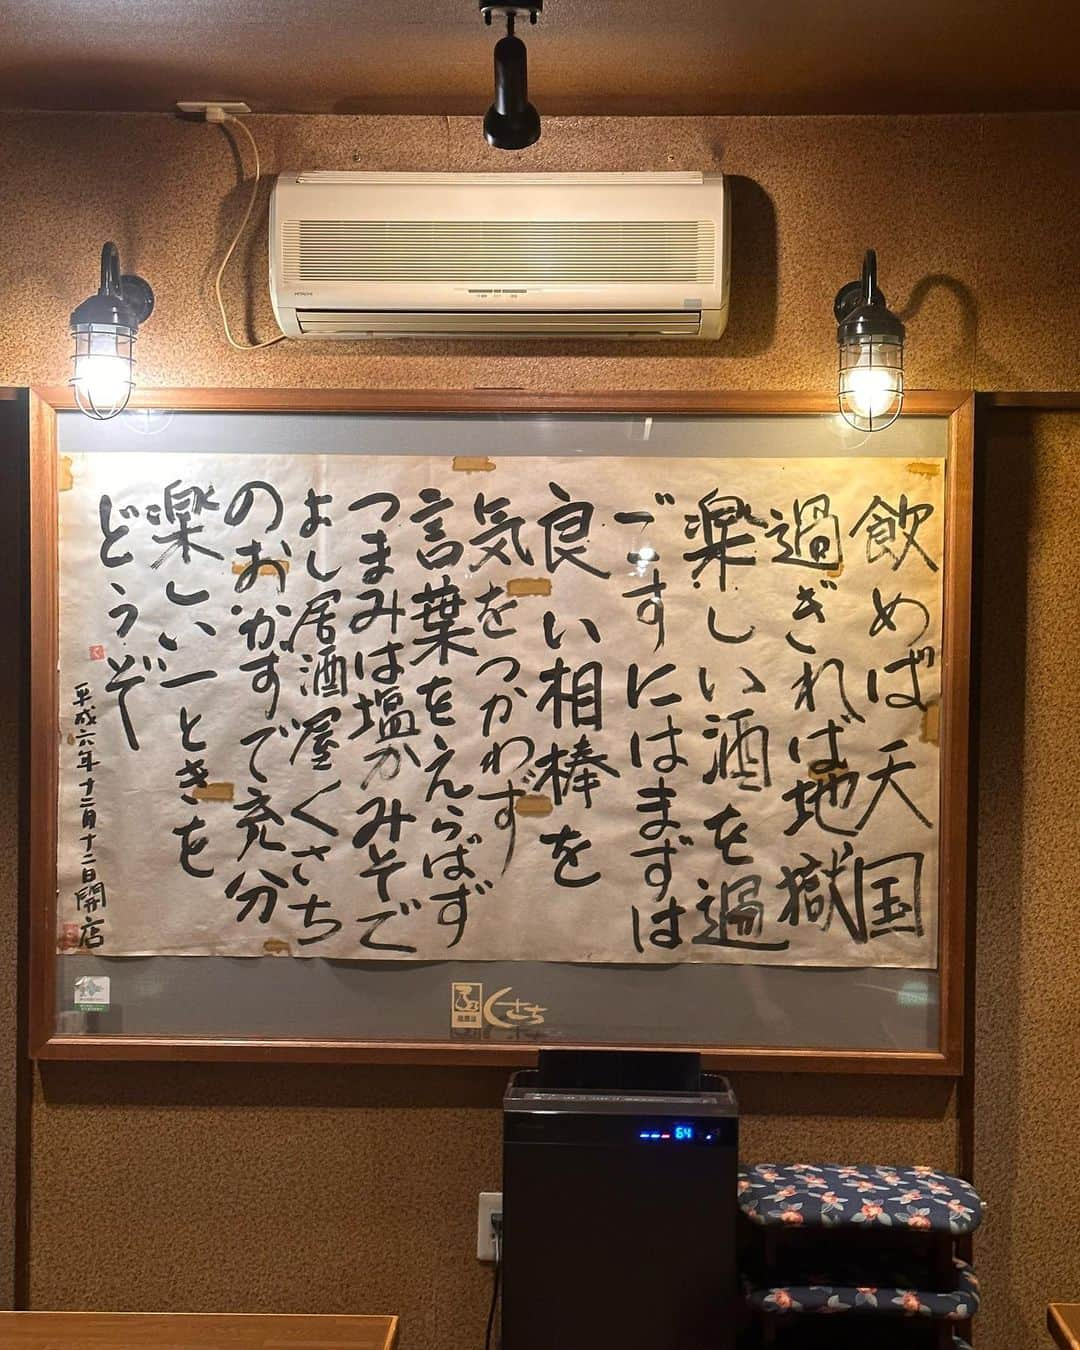 飲めば天国
過ぎれば地獄
楽しい酒を過
ごすにはまずは
良い相棒を
気をつかわず
言葉をえらばず
つまみは塩かみそで
よし居酒屋くさち
のおかずで充分
楽しい一ときを
どうぞ
平成六年十二月十二日開店
くさち
HITACHI
64